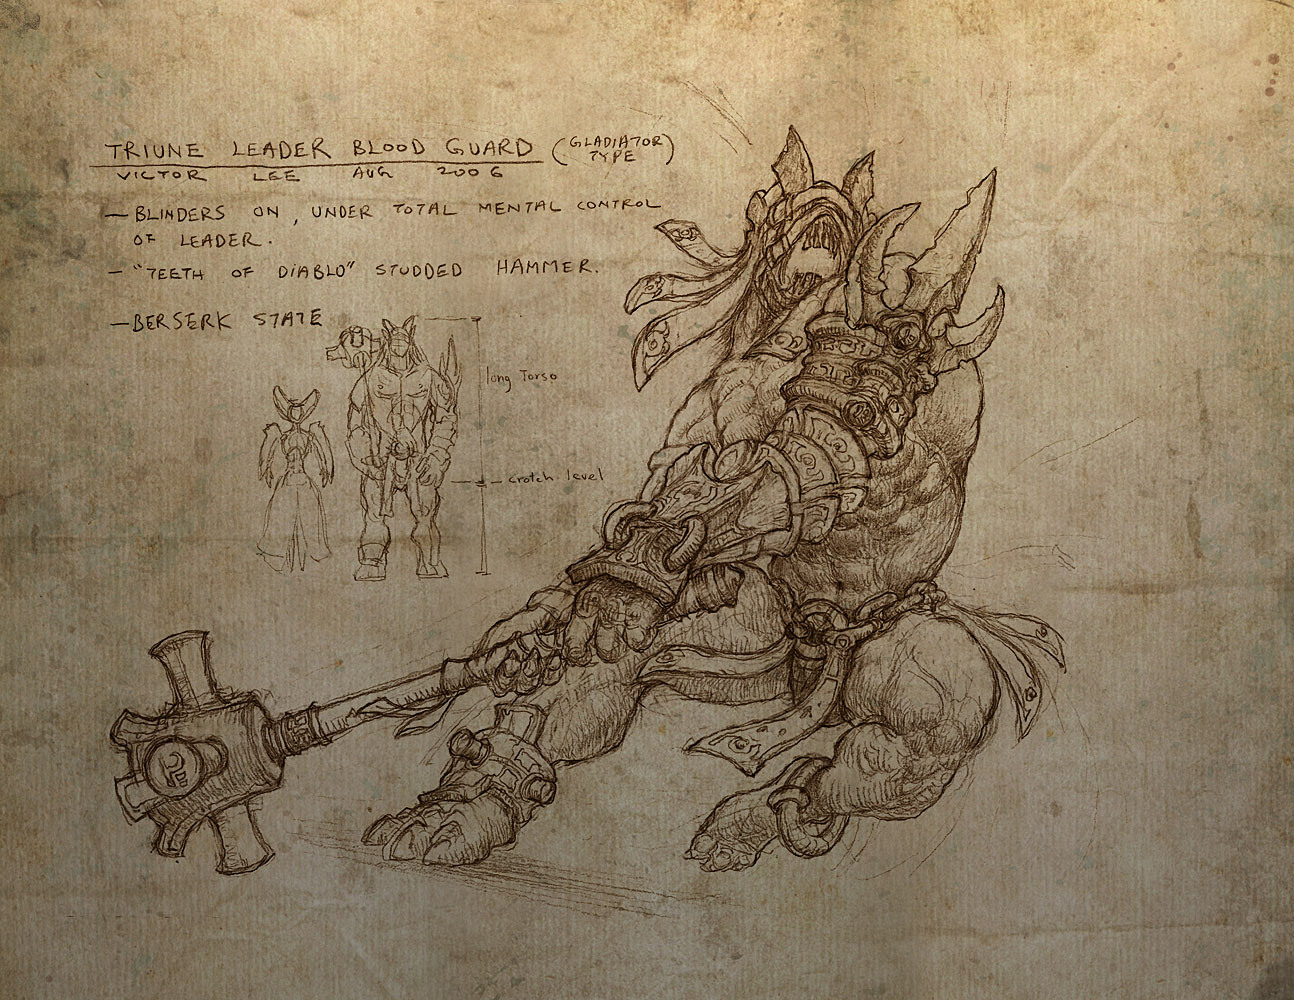 TRIUNE LEADER BLOOD GUARD (GLADIATOR TYPE)
VICTOR LEE AUG 2006
— BLINDERS ON, UNDER TOTAL MENTAL CONTROL
OF LEADER.
— "TEETH OF DIABLO" STUDDED HAMMER.
— BERSERK STATE
long Torso
crotch level